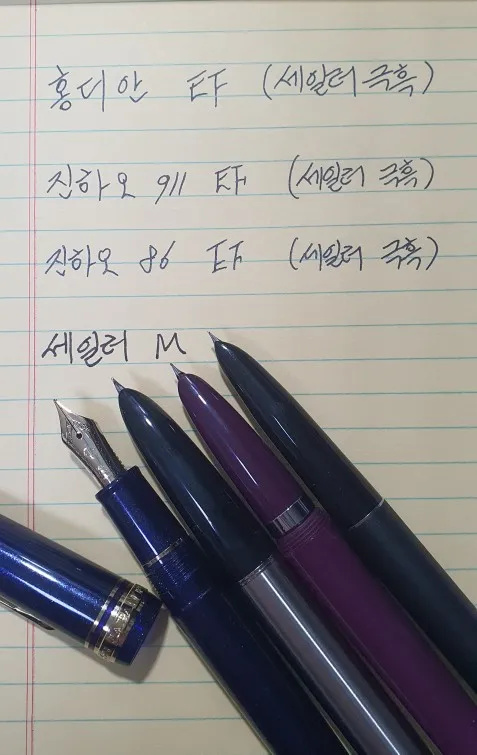 홍디안 EF (세일러 극흑)
진하오 911 EF (세일러 극흑)
진하오 86 EF (세일러 극흑)
세일러 M